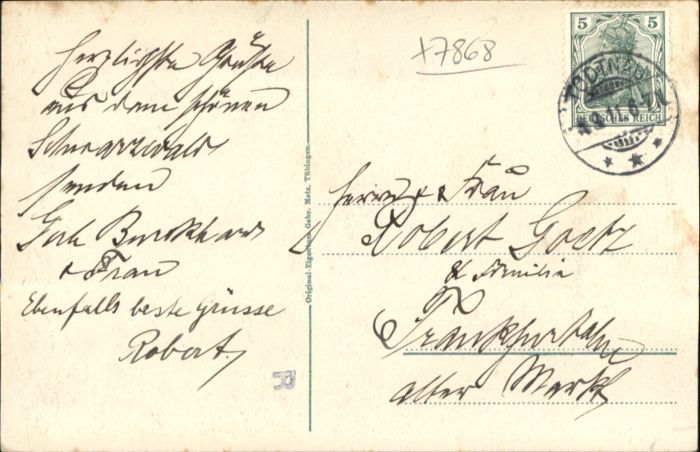 Herzlichste Grüße
aus dem schönen
Schwarzwald
senden
Burkhard
& Frau
Ebenfalls beste Grüsse
Robert
Original-Eigentum Gebr. Metz, Tübingen
R
+7868
5 5
DEUTSCHES REICH
Herrn & Frau
Robert Goetz
& Familie
Frankfurt
alter Markt